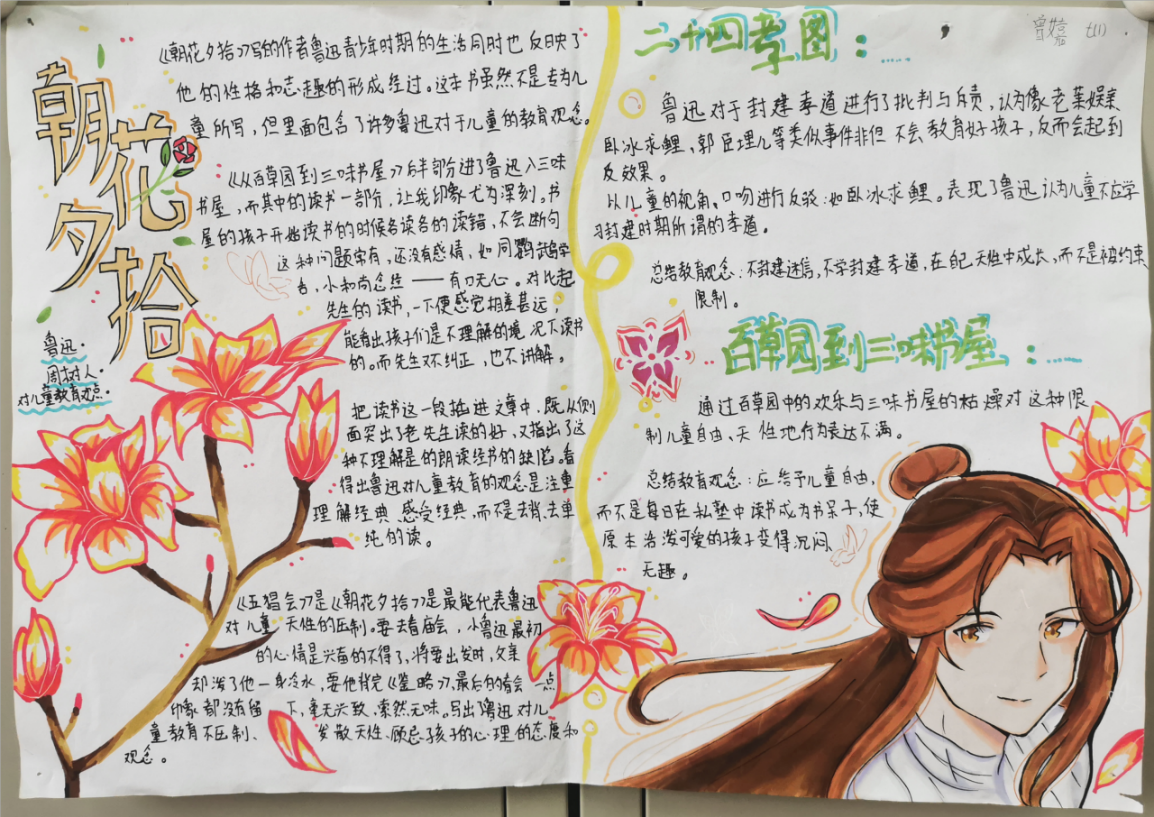 朝花夕拾
鲁迅·
周树人·
对儿童教育观点·
《朝花夕拾》写的作者鲁迅青少年时期的生活同时也反映了
他的性格和志趣的形成经过。这本书虽然不是专为儿
童所写，但里面包含了许多鲁迅对于儿童的教育观念。
《从百草园到三味书屋》后半部分进了鲁迅入三味
书屋，而其中的读书一部分，让我印象尤为深刻。书
屋的孩子开始读书的时候各读各的读错，不会断句
这种问题常有，还没有感情，如同鹦鹉学
舌，小和尚念经——有口无心。对比起
先生的读书，一下便感觉相差甚远，
能看出孩子们是不理解的境况下读书
的。而先生又不纠正，也不讲解。
把读书这一段描进文章中，既从侧
面突出了老先生读的好，又指出了这
种不理解是的朗读经书的缺陷。看
得出鲁迅对儿童教育的观念是注重
理解经典、感受经典，而不是去背、去单
纯的读。
《五猖会》是《朝花夕拾》是最能代表鲁迅
对儿童天性的压制。要去看庙会，小鲁迅最初
的心情是兴奋的不得了，将要出发时，父亲
却泼了他一身冷水，要他背完《鉴略》，最后的看会一点
印象都没有留下，毫无兴致、索然无味。写出鲁迅对儿
童教育不压制、发散天性、顾忌孩子的心理的态度和
观念。
曾嬉 七(1)
二十四孝图：……
鲁迅对于封建孝道进行了批判与斥责，认为像老莱娱亲
卧冰求鲤、郭臣埋儿等类似事件非但不会教育好孩子，反而会起到
反效果。
从儿童的视角、口吻进行反驳：如卧冰求鲤。表现了鲁迅认为儿童不应学
习封建时期所谓的孝道。
总结教育观念：不封建迷信，不学封建孝道，在自己天性中成长，而不是被约束
限制。
百草园到三味书屋：……
通过百草园中的欢乐与三味书屋的枯燥对这种限
制儿童自由、天性地行为表达不满。
总结教育观念：应给予儿童自由，
而不是每日在私塾中读书成为书呆子，使
原本活泼可爱的孩子变得沉闷、
无趣。